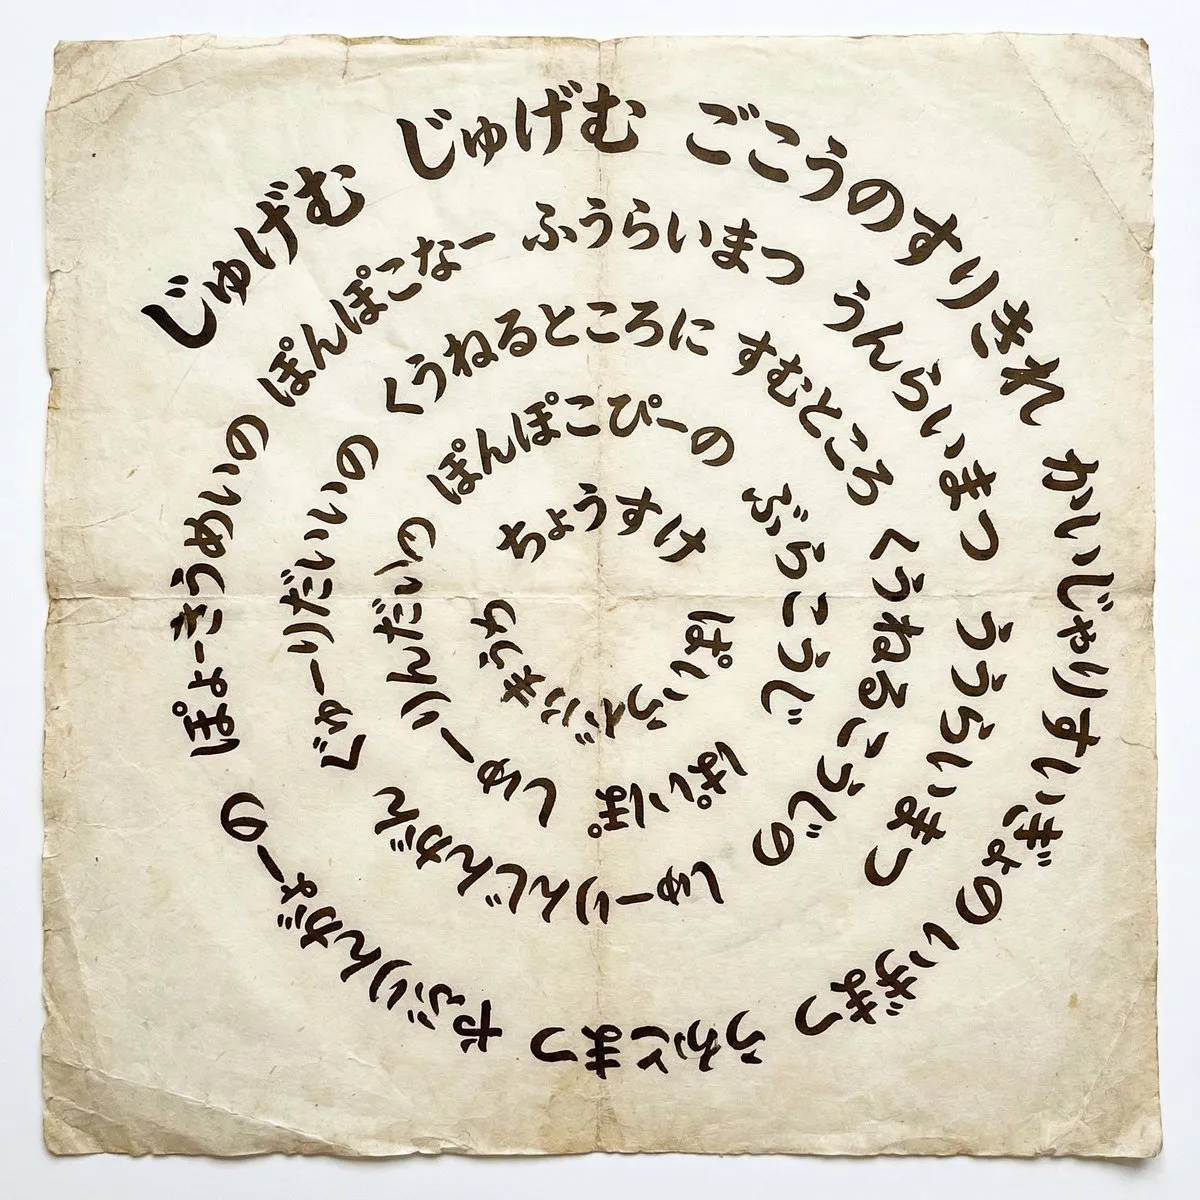 じゅげむ じゅげむ ごこうのすりきれ かいじゃりすいぎょの いぎまつ うかとまつ やぶりんがょーの
ぽょーきうめいの ぽんぽこなー ふうらいまつ うんらいまつ ううらいまつ しゅーりんじんがん
じゅーりだいいの くうねるところに すむところ くうねるこうじの ぱいぽ
しゅーりんだいの ぽんぽこぴーの ぶらこうじ
ちょうすけ